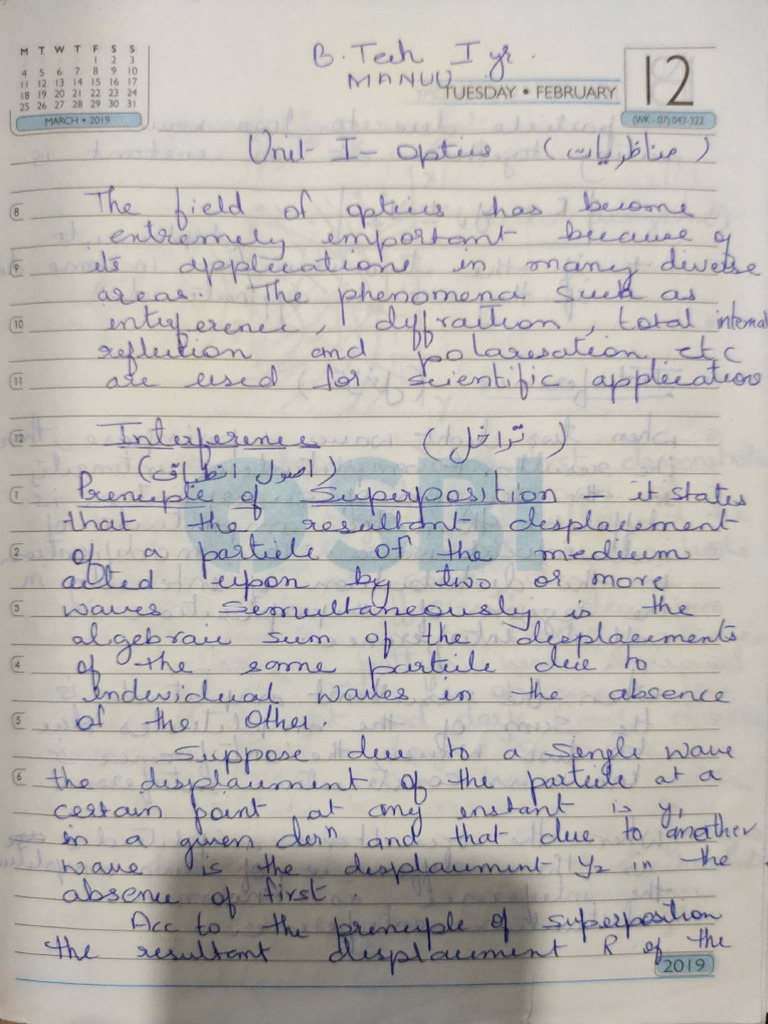 M T W T F S S
1 2 3
4 5 6 7 8 9 10
11 12 13 14 15 16 17
18 19 20 21 22 23 24
25 26 27 28 29 30 31
MARCH • 2019
B.Tech I yr.
MANUU
TUESDAY • FEBRUARY
12
(WK - 07) 043-322
Unit-I- Optics (مناظریات)
8 The field of optics has become
extremely important because of
9 its applications in many diverse
areas. The phenomena such as
10 interference, diffraction, total internal
reflection and polarisation etc
11 are used for scientific applications
12 Interference (تراخل)
(اصول انطباق)
1 Principle of Superposition - it states
that the resultant displacement
2 of a particle of the medium
acted upon by two or more
3 waves simultaneously is the
algebraic sum of the displacements
4 of the same particle due to
individual waves in the absence
5 of the other.
Suppose due to a single wave
6 the displacement of the particle at a
certain point at any instant is y₁
in a given dirⁿ and that due to another
wave is the displacement y₂ in the
absence of first.
Acc to the principle of superposition
the resultant displacement R of the
2019
SBI